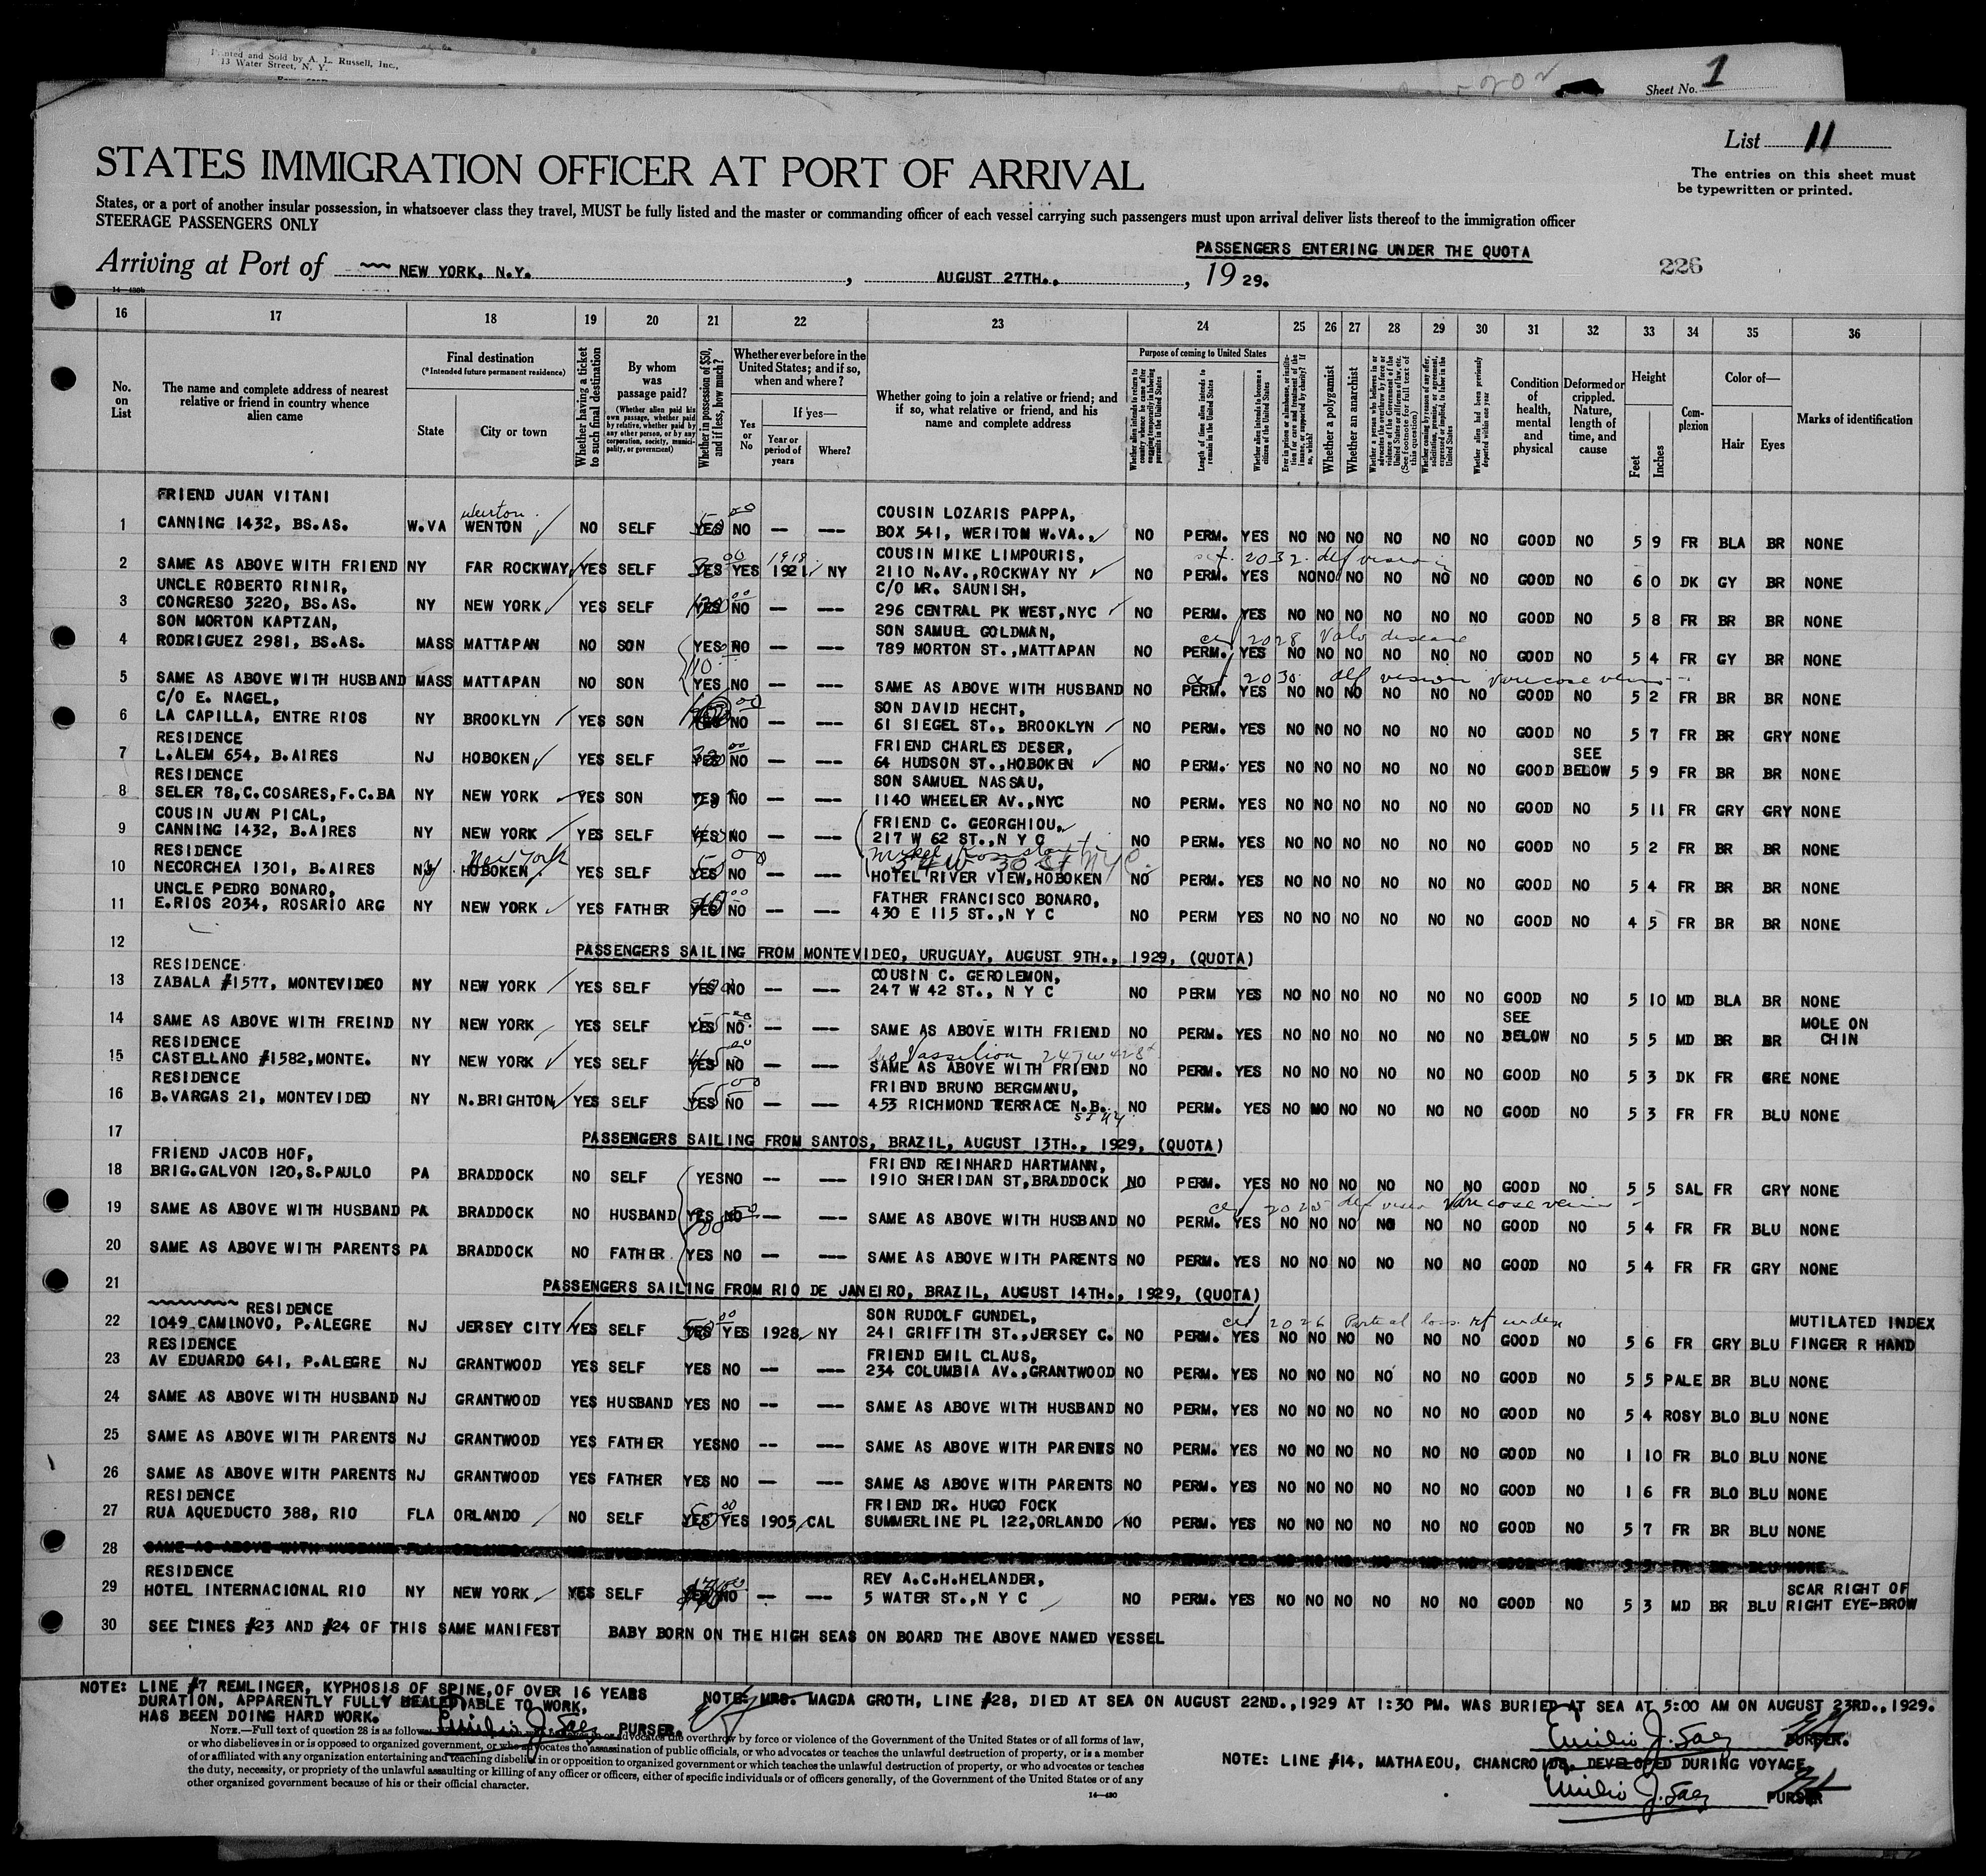 Printed and Sold by A. L. Russell, Inc.,
13 Water Street, N. Y.
Sheet No. 1
List 11
STATES IMMIGRATION OFFICER AT PORT OF ARRIVAL
The entries on this sheet must
be typewritten or printed.
States, or a port of another insular possession, in whatsoever class they travel, MUST be fully listed and the master or commanding officer of each vessel carrying such passengers must upon arrival deliver lists thereof to the immigration officer
STEERAGE PASSENGERS ONLY
PASSENGERS ENTERING UNDER THE QUOTA
Arriving at Port of NEW YORK, N.Y. , AUGUST 27TH., , 19 29.
226
16 17 18 19 20 21 22 23 24 25 26 27 28 29 30 31 32 33 34 35 36
No. on List
The name and complete address of nearest relative or friend in country whence alien came
Final destination
(*Intended future permanent residence)
State
City or town
Whether having a ticket to such final destination
By whom was passage paid?
(Whether alien paid his own passage, whether paid by relative, whether paid by any other person, or by any corporation, society, municipality, or government)
Whether in possession of $50, and if less, how much?
Whether ever before in the United States; and if so, when and where?
Yes or No
If yes—
Year or period of years
Where?
Whether going to join a relative or friend; and if so, what relative or friend, and his name and complete address
Purpose of coming to United States
Length of time alien intends to remain in the United States
Whether alien intends to become a citizen of the United States
Whether a polygamist
Whether an anarchist
Condition of health, mental and physical
Deformed or crippled. Nature, length of time, and cause
Height
Feet
Inches
Complexion
Color of—
Hair
Eyes
Marks of identification
FRIEND JUAN VITANI COUSIN LOZARIS PAPPA,
1 CANNING 1432, BS.AS. W.VA WENTON NO SELF YES NO — --- BOX 541, WERITOM W.VA. NO PERM. YES NO NO NO NO NO NO GOOD NO 5 9 FR BLA BR NONE
COUSIN MIKE LIMPOURIS,
2 SAME AS ABOVE WITH FRIEND NY FAR ROCKWAY YES SELF YES YES 1921 NY 2110 N.AV.,ROCKWAY NY NO PERM. YES NO NO NO NO NO NO GOOD NO 6 0 DK GY BR NONE
UNCLE ROBERTO RINIR, C/O MR. SAUNISH,
3 CONGRESO 3220, BS.AS. NY NEW YORK YES SELF YES NO — --- 296 CENTRAL PK WEST,NYC NO PERM. YES NO NO NO NO NO NO GOOD NO 5 8 FR BR BR NONE
SON MORTON KAPTZAN, SON SAMUEL GOLDMAN,
4 RODRIGUEZ 2981, BS.AS. MASS MATTAPAN NO SON YES NO — --- 789 MORTON ST.,MATTAPAN NO PERM. YES NO NO NO NO NO NO GOOD NO 5 4 FR GY BR NONE
5 SAME AS ABOVE WITH HUSBAND MASS MATTAPAN NO SON YES NO — --- SAME AS ABOVE WITH HUSBAND NO PERM. YES NO NO NO NO NO NO GOOD NO 5 2 FR BR BR NONE
C/O E. NAGEL, SON DAVID HECHT,
6 LA CAPILLA, ENTRE RIOS NY BROOKLYN YES SON YES NO — --- 61 SIEGEL ST., BROOKLYN NO PERM. YES NO NO NO NO NO NO GOOD NO 5 7 FR BR GRY NONE
RESIDENCE FRIEND CHARLES DESER, SEE
7 L.ALEM 654, B.AIRES NJ HOBOKEN YES SELF YES NO — --- 64 HUDSON ST.,HOBOKEN NO PERM. YES NO NO NO NO NO NO GOOD BELOW 5 9 FR BR BR NONE
RESIDENCE SON SAMUEL NASSAU,
8 SELER 78,C.COSARES,F.C.BA NY NEW YORK YES SON YES NO — --- 1140 WHEELER AV.,NYC NO PERM. YES NO NO NO NO NO NO GOOD NO 5 11 FR GRY GRY NONE
COUSIN JUAN PICAL, FRIEND C. GEORGHIOU,
9 CANNING 1432, B.AIRES NY NEW YORK YES SELF YES NO — --- 217 W 62 ST.,N Y C NO PERM. YES NO NO NO NO NO NO GOOD NO 5 2 FR BR BR NONE
RESIDENCE New York
10 NECORCHEA 1301, B.AIRES NJ HOBOKEN YES SELF YES NO — --- HOTEL RIVER VIEW,HOBOKEN NO PERM. YES NO NO NO NO NO NO GOOD NO 5 4 FR BR BR NONE
UNCLE PEDRO BONARO, FATHER FRANCISCO BONARO,
11 E.RIOS 2034, ROSARIO ARG NY NEW YORK YES FATHER YES NO — --- 430 E 115 ST.,N Y C NO PERM YES NO NO NO NO NO NO GOOD NO 4 5 FR BR BR NONE
12 PASSENGERS SAILING FROM MONTEVIDEO, URUGUAY, AUGUST 9TH., 1929, (QUOTA)
RESIDENCE COUSIN C. GEROLEMON,
13 ZABALA #1577, MONTEVIDEO NY NEW YORK YES SELF YES NO — --- 247 W 42 ST., N Y C NO PERM YES NO NO NO NO NO NO GOOD NO 5 10 MD BLA BR NONE
SEE MOLE ON
14 SAME AS ABOVE WITH FREIND NY NEW YORK YES SELF YES NO — --- SAME AS ABOVE WITH FRIEND NO PERM. YES NO NO NO NO NO NO BELOW NO 5 5 MD BR BR CHIN
RESIDENCE
15 CASTELLANO #1582,MONTE. NY NEW YORK YES SELF YES NO — --- SAME AS ABOVE WITH FRIEND NO PERM. YES NO NO NO NO NO NO GOOD NO 5 3 DK FR GRE NONE
RESIDENCE FRIEND BRUNO BERGMANU,
16 B.VARGAS 21, MONTEVIDEO NY N.BRIGHTON YES SELF YES NO — --- 453 RICHMOND TERRACE N.B. NO PERM. YES NO NO NO NO NO NO GOOD NO 5 3 FR FR BLU NONE
17 PASSENGERS SAILING FROM SANTOS, BRAZIL, AUGUST 13TH., 1929, (QUOTA)
FRIEND JACOB HOF, FRIEND REINHARD HARTMANN,
18 BRIG.GALVON 120,S.PAULO PA BRADDOCK NO SELF YES NO — --- 1910 SHERIDAN ST,BRADDOCK NO PERM. YES NO NO NO NO NO NO GOOD NO 5 5 SAL FR GRY NONE
19 SAME AS ABOVE WITH HUSBAND PA BRADDOCK NO HUSBAND YES NO — --- SAME AS ABOVE WITH HUSBAND NO PERM. YES NO NO NO NO NO NO GOOD NO 5 4 FR FR BLU NONE
20 SAME AS ABOVE WITH PARENTS PA BRADDOCK NO FATHER YES NO — --- SAME AS ABOVE WITH PARENTS NO PERM. YES NO NO NO NO NO NO GOOD NO 5 4 FR FR GRY NONE
21 PASSENGERS SAILING FROM RIO DE JANEIRO, BRAZIL, AUGUST 14TH., 1929, (QUOTA)
RESIDENCE SON RUDOLF GUNDEL, MUTILATED INDEX
22 1049 CAMINOVO, P.ALEGRE NJ JERSEY CITY YES SELF YES YES 1928 NY 241 GRIFFITH ST.,JERSEY C. NO PERM. YES NO NO NO NO NO NO GOOD NO 5 6 FR GRY BLU FINGER R HAND
RESIDENCE FRIEND EMIL CLAUS,
23 AV EDUARDO 641, P.ALEGRE NJ GRANTWOOD YES SELF YES NO — --- 234 COLUMBIA AV.,GRANTWOOD NO PERM. YES NO NO NO NO NO NO GOOD NO 5 5 PALE BR BLU NONE
24 SAME AS ABOVE WITH HUSBAND NJ GRANTWOOD YES HUSBAND YES NO — --- SAME AS ABOVE WITH HUSBAND NO PERM. YES NO NO NO NO NO NO GOOD NO 5 4 ROSY BLO BLU NONE
25 SAME AS ABOVE WITH PARENTS NJ GRANTWOOD YES FATHER YES NO — --- SAME AS ABOVE WITH PARENTS NO PERM. YES NO NO NO NO NO NO GOOD NO 1 10 FR BLO BLU NONE
26 SAME AS ABOVE WITH PARENTS NJ GRANTWOOD YES FATHER YES NO — --- SAME AS ABOVE WITH PARENTS NO PERM. YES NO NO NO NO NO NO GOOD NO 1 6 FR BLO BLU NONE
RESIDENCE FRIEND DR. HUGO FOCK
27 RUA AQUEDUCTO 388, RIO FLA ORLANDO NO SELF YES YES 1905 CAL SUMMERLINE PL 122,ORLANDO NO PERM. YES NO NO NO NO NO NO GOOD NO 5 7 FR BR BLU NONE
28
RESIDENCE REV A.C.H.HELANDER, SCAR RIGHT OF
29 HOTEL INTERNACIONAL RIO NY NEW YORK YES SELF NO — --- 5 WATER ST.,N Y C NO PERM. YES NO NO NO NO NO NO GOOD NO 5 3 MD BR BLU RIGHT EYE-BROW
30 SEE LINES #23 AND #24 OF THIS SAME MANIFEST BABY BORN ON THE HIGH SEAS ON BOARD THE ABOVE NAMED VESSEL
NOTE: LINE #7 REMLINGER, KYPHOSIS OF SPINE,OF OVER 16 YEARS
DURATION, APPARENTLY FULLY HEALED,ABLE TO WORK,
HAS BEEN DOING HARD WORK.
Emilio J. Saez PURSER.
NOTE: MRS. MAGDA GROTH, LINE #28, DIED AT SEA ON AUGUST 22ND.,1929 AT 1:30 PM. WAS BURIED AT SEA AT 5:00 AM ON AUGUST 23RD.,1929.
Emilio J. Saez PURSER.
NOTE.—Full text of question 28 is as follows: advocates the overthrow by force or violence of the Government of the United States or of all forms of law,
or who disbelieves in or is opposed to organized government, or who advocates the assassination of public officials, or who advocates or teaches the unlawful destruction of property, or is a member
of or affiliated with any organization entertaining and teaching disbelief in or opposition to organized government or which teaches the unlawful destruction of property, or who advocates or teaches
the duty, necessity, or propriety of the unlawful assaulting or killing of any officer or officers, either of specific individuals or of officers generally, of the Government of the United States or of any
other organized government because of his or their official character.
14—430
NOTE: LINE #14, MATHAEOU, CHANCROIDS, DEVELOPED DURING VOYAGE,
Emilio J. Saez PURSER